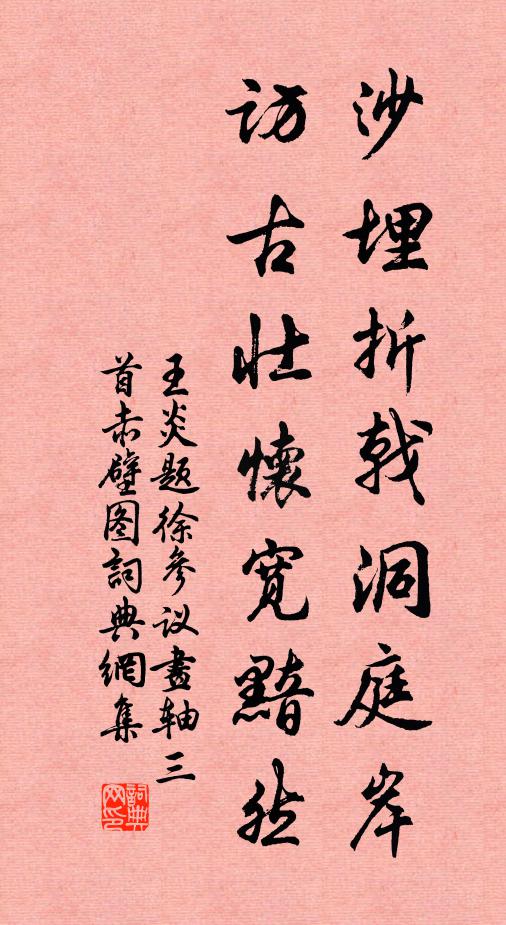 沙埋折戟洞庭岸
访古壮懷宽黯然
王炎题徐參议畫轴三
首赤壁图詞典網集
詞典
网印